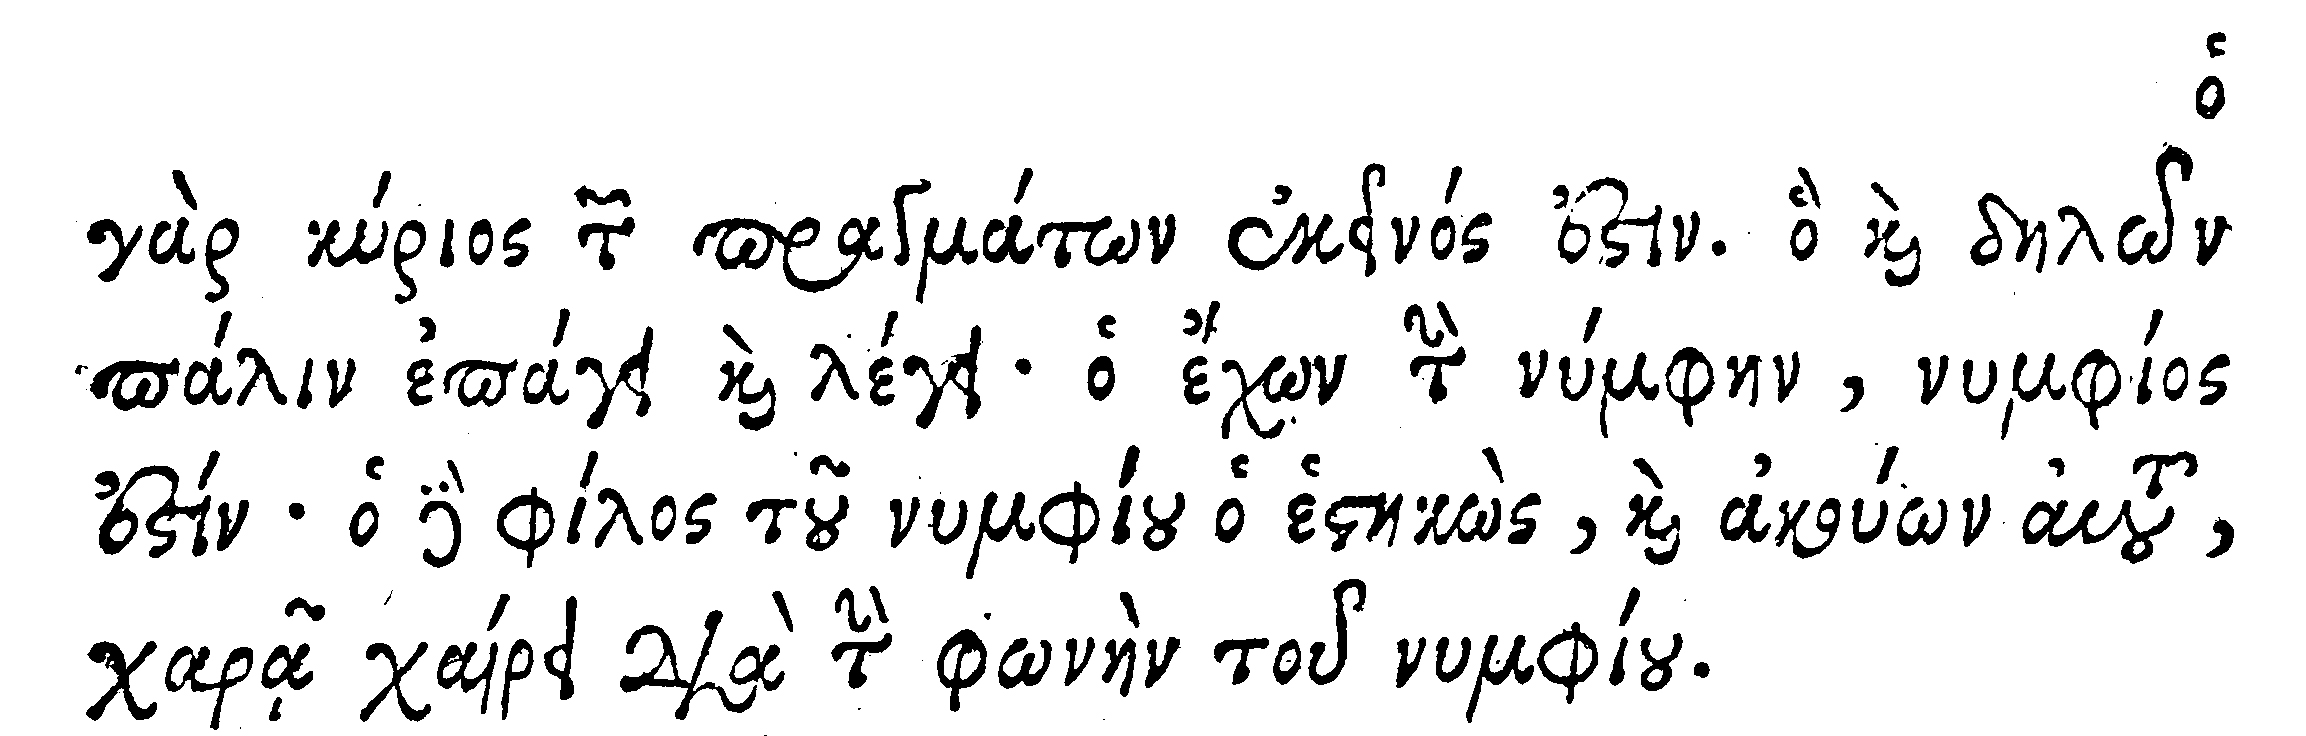 ὁ
γὰρ κύριος τῶν πραγμάτων ἐκεῖνός ἐστιν. ὃ καὶ δηλῶν
πάλιν ἐπάγει καὶ λέγει· ὁ ἔχων τὴν νύμφην, νυμφίος
ἐστίν· ὁ δὲ φίλος τοῦ νυμφίου ὁ ἑστηκὼς, καὶ ἀκούων αὐτοῦ,
χαρᾷ χαίρει διὰ τὴν φωνὴν τοῦ νυμφίου.